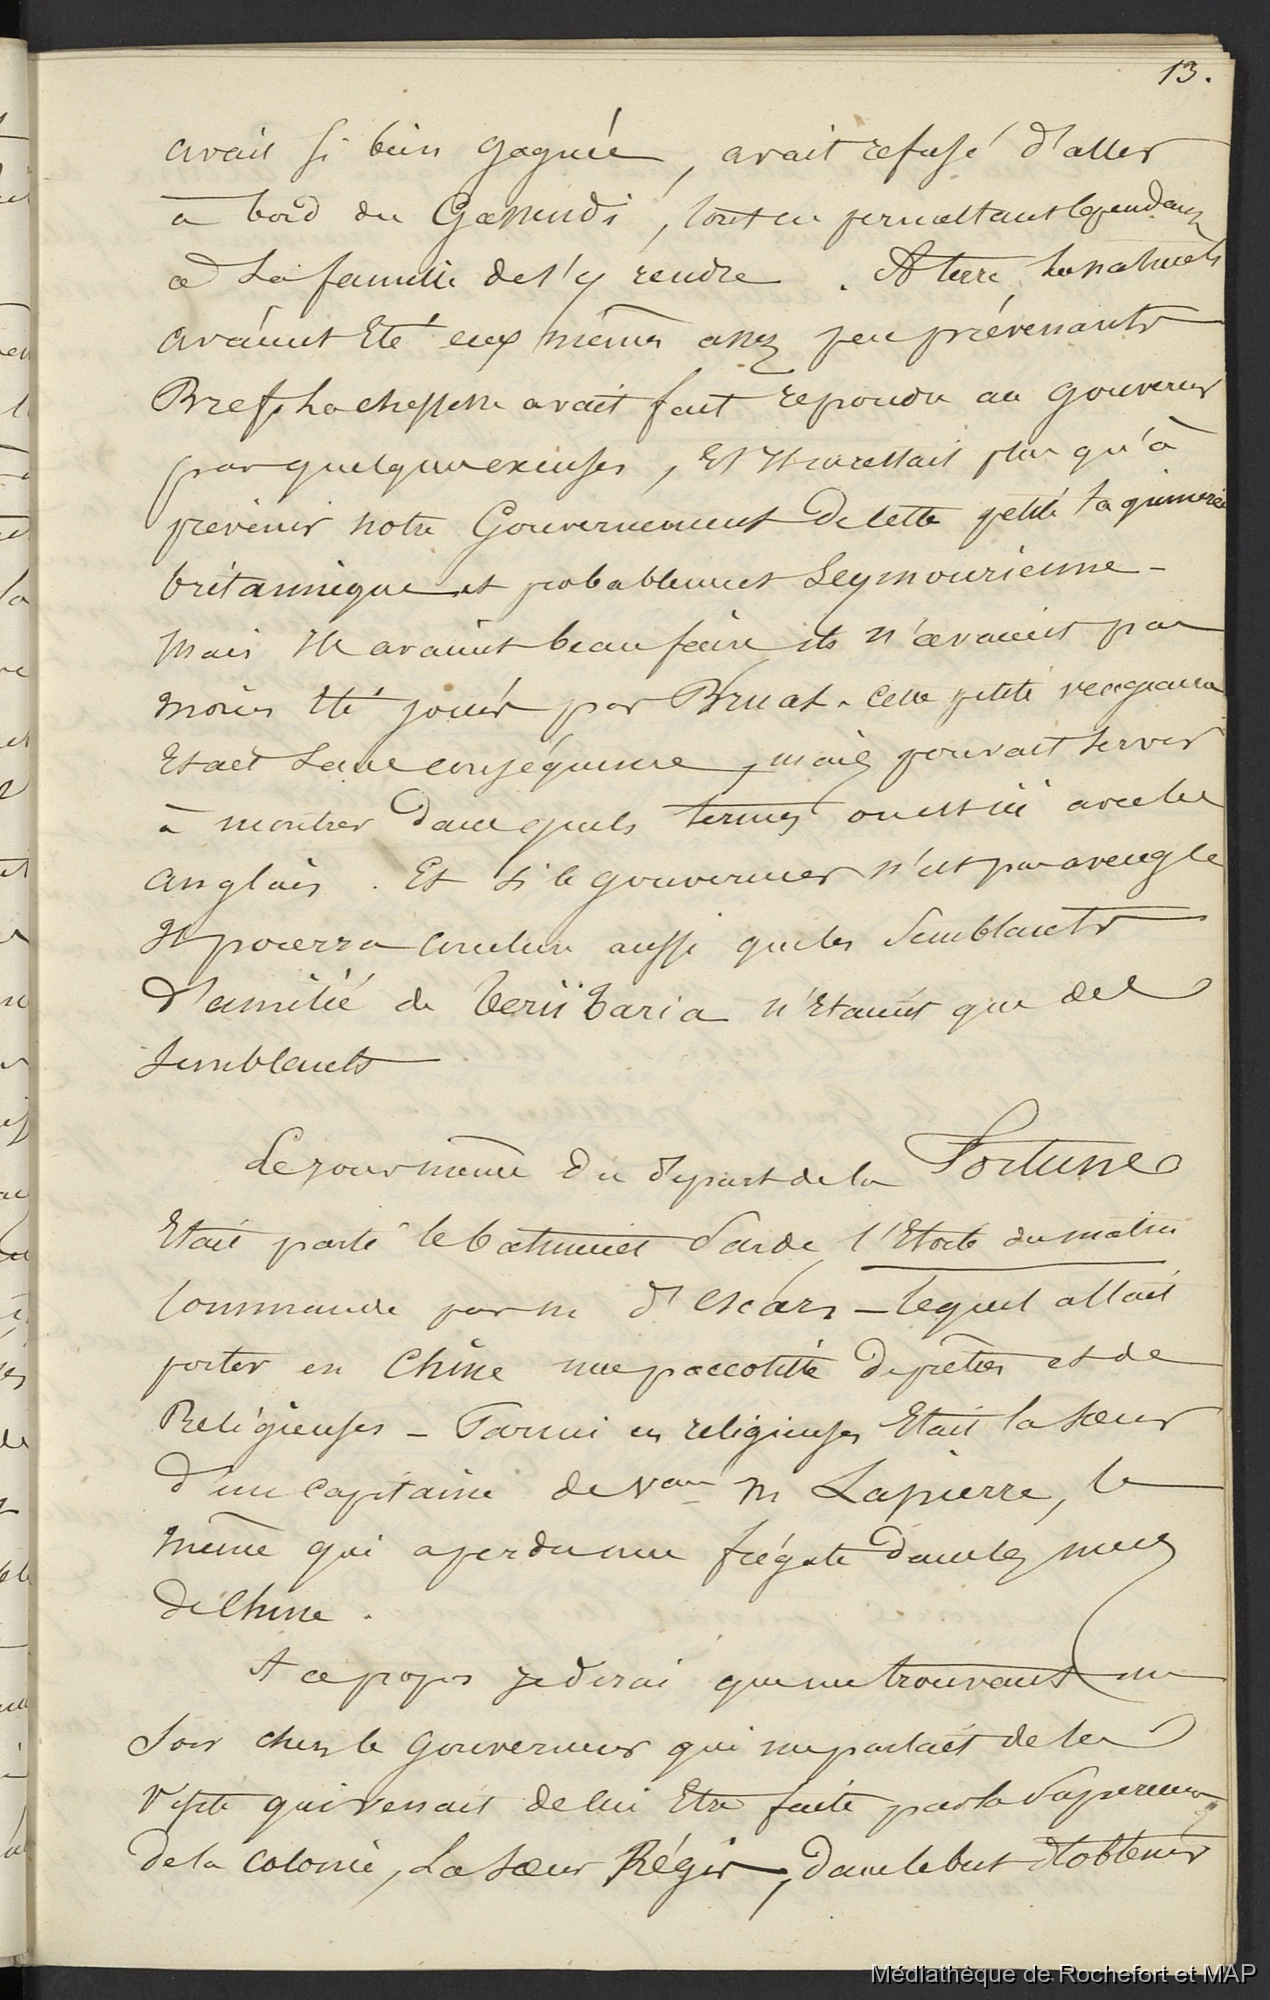 13.
avait si bien gagnée, avait refusé d'aller
à bord du Gassendi, tout en permettant cependant
à sa famille de s'y rendre. A terre, les naturels
avaient été eux mêmes assez peu prévenants
Bref, la cheffesse avait fait repondre au gouverneur
par quelques excuses, et il ne restait plus qu'à
prévenir notre Gouvernement de cette petite taquinerie
britannique et probablement Seymourienne -
Mais ils avaient beau faire ils n'avaient pas
moins été joués par Bruat. Cette petite vengeance
était sans conséquence, mais pouvait servir
à montrer dans quels termes on est ici avec les
anglais. Et si le gouverneur n'est pas aveugle
il pourra conclure aussi que les semblants
d'amitié de Teriitaria n'étaient que des
semblants
Le jour même du départ de la Fortune
était parti le batiment Sarde, l'Etoile du matin
commandé par M d'Escars - lequel allait
porter en Chine une pacotille de prêtres et de
Religieuses - Parmi ces religieuses était la soeur
d'un capitaine de Vau M Lapierre, le
même qui a perdu une frégate dans les mers
de Chine.
A ce propos je dirai que me trouvant un
soir chez le gouverneur qui me parlait de la
visite qui venait de lui être faite par la Superieure
de la colonie, la soeur Régis, dans le but d'obtenir
Médiathèque de Rochefort et MAP